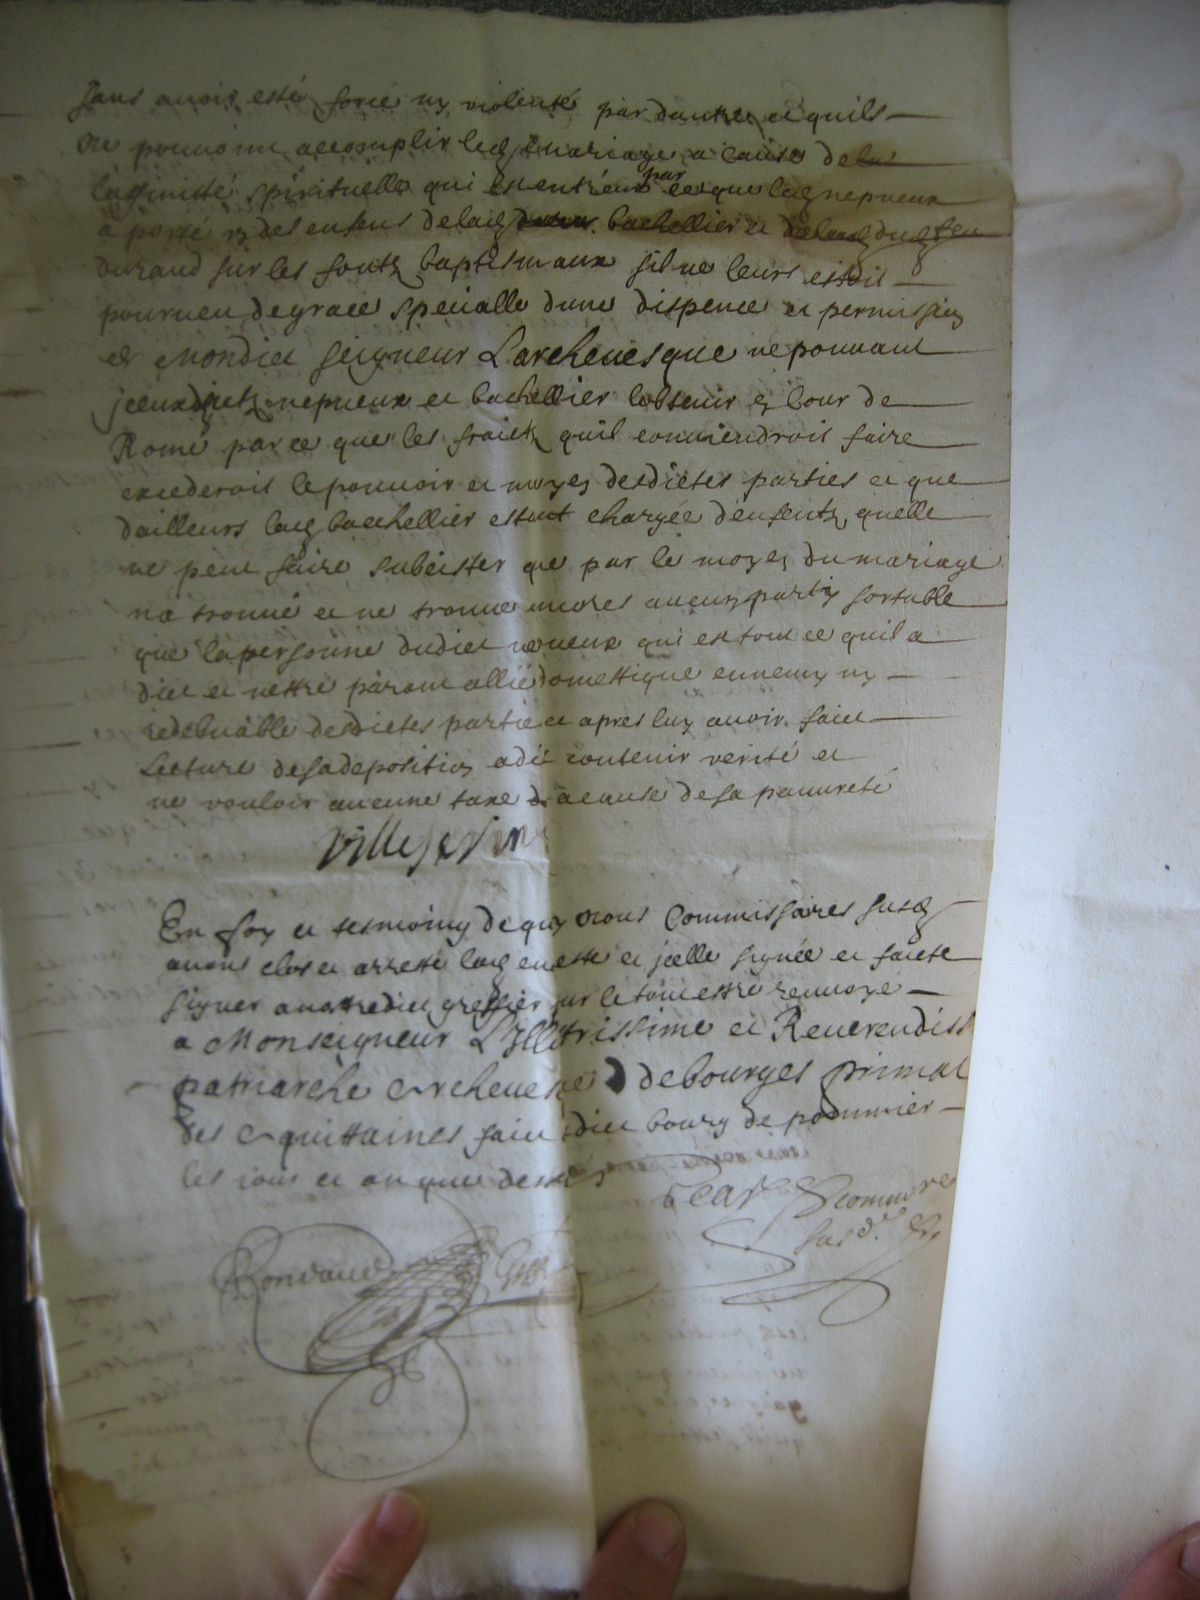 sans avoir esté forcé ny violenté par dautre et quils
ne pouvoint accomplir led mariage a cause de la
laffinitté spirituelle qui est entreux par ce que led nepveux
a porté un des enfens de lad bachellier et dud feu
durand sur les fontz baptismaux sil ne leurs estoit
pourveu de grace specialle dune dispence et permission
de Mondict seigneur Larchevesque ne pouvant
jceux dictz nepveux et bachellier lobtenir en Cour de
Rome par ce que les fraictz quil conviendroit faire
excederoit le pouvoir et moyen desdictes parties et que
dailleurs lad bachellier estant chargée denfentz quelle
ne peut faire subcister que par le moyen du mariage
na trouvé et ne trouve aucun party sortable
que la personne dudict neveux qui est tout ce quil a
dict et nestre parent allié domestique ennemy ny
redebvable desdictes partie et apres luy avoir faict
lecture de sa deposition a dit contenir verité et
ne vouloir aucune taxe a cause de sa pauvreté
En foy et tesmoing de quoy Nous Commissaires susd
avons clos et arresté lad enqueste et jcelle signée et faicte
signer a nostre dict greffier pur le tout estre renvoyé
a Monseigneur L'Illustrissime et Reverendiss
patriarche Archevesque de bourges primat
des Aquittaines faict audict bourg de pommier
les jour et an que dessus
commre
susd.
Rondaud Greffier